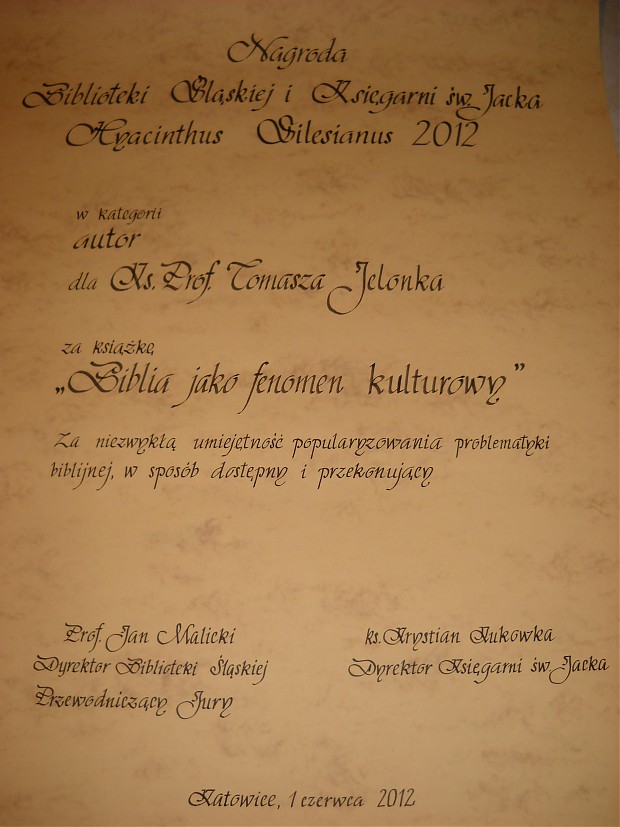 Nagroda
Biblioteki Śląskiej i Księgarni św. Jacka
Hyacinthus Silesianus 2012
w kategorii
autor
dla Ks. Prof. Tomasza Jelonka
za książkę
„Biblia jako fenomen kulturowy”
Za niezwykłą umiejętność popularyzowania problematyki
biblijnej, w sposób dostępny i przekonujący
Prof. Jan Malicki
Dyrektor Biblioteki Śląskiej
Przewodniczący Jury
ks. Krystian Kukowka
Dyrektor Księgarni św. Jacka
Katowice, 1 czerwca 2012